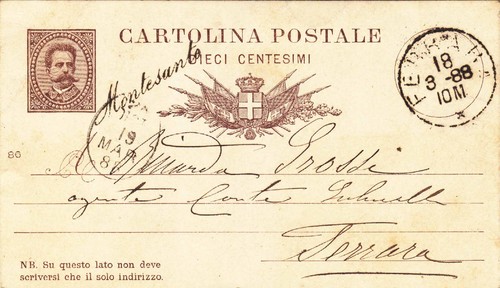 CARTOLINA POSTALE
DIECI CENTESIMI
Montesanto
19
MAR
8
FERRARA
18
3-88
10M
86
Grossi
agente Conte
Ferrara
NB. Su questo lato non deve
scriversi che il solo indirizzo.